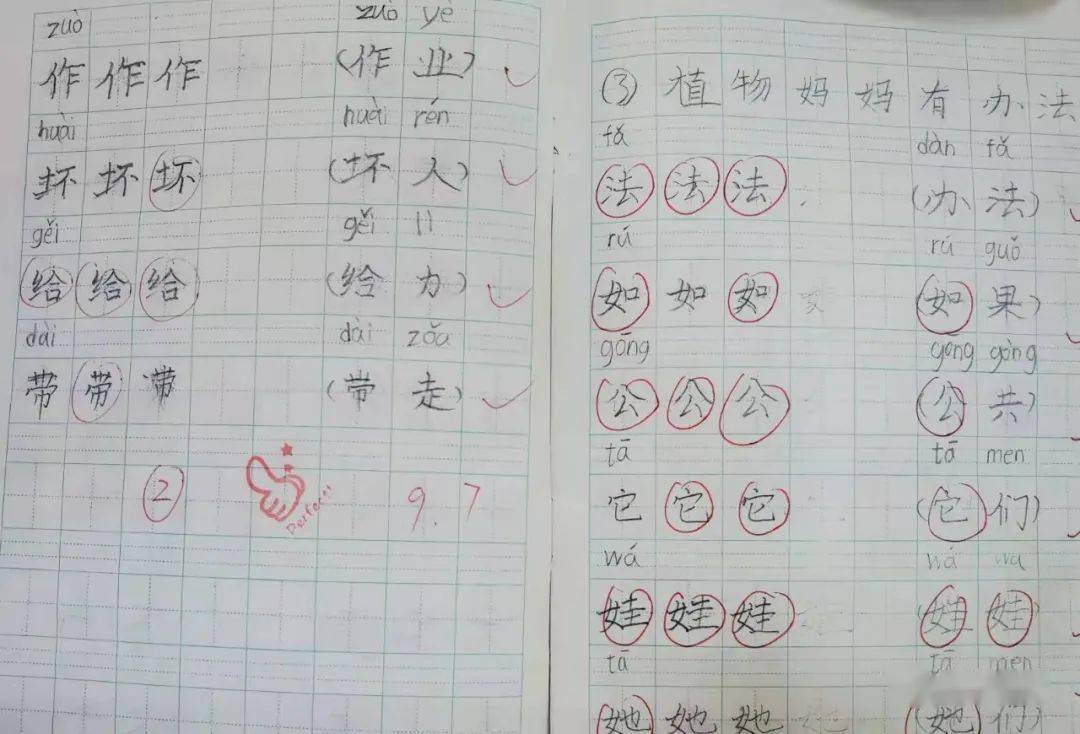 zuò zuò yè
作 作 作 (作 业)
huài huài rén
坏 坏 坏 (坏 人)
gěi gěi lì
给 给 给 (给 力)
dài dài zǒu
带 带 带 (带 走)
② Perfect! 9.7
③ 植 物 妈 妈 有 办 法
fǎ dàn fǎ
法 法 法 (办 法)
rú rú guǒ
如 如 如 (如 果)
gōng gōng gòng
公 公 公 (公 共)
tā tā men
它 它 它 (它 们)
wá wá wa
娃 娃 娃 (娃 娃)
tā tā men
她 她 她 (她 们)